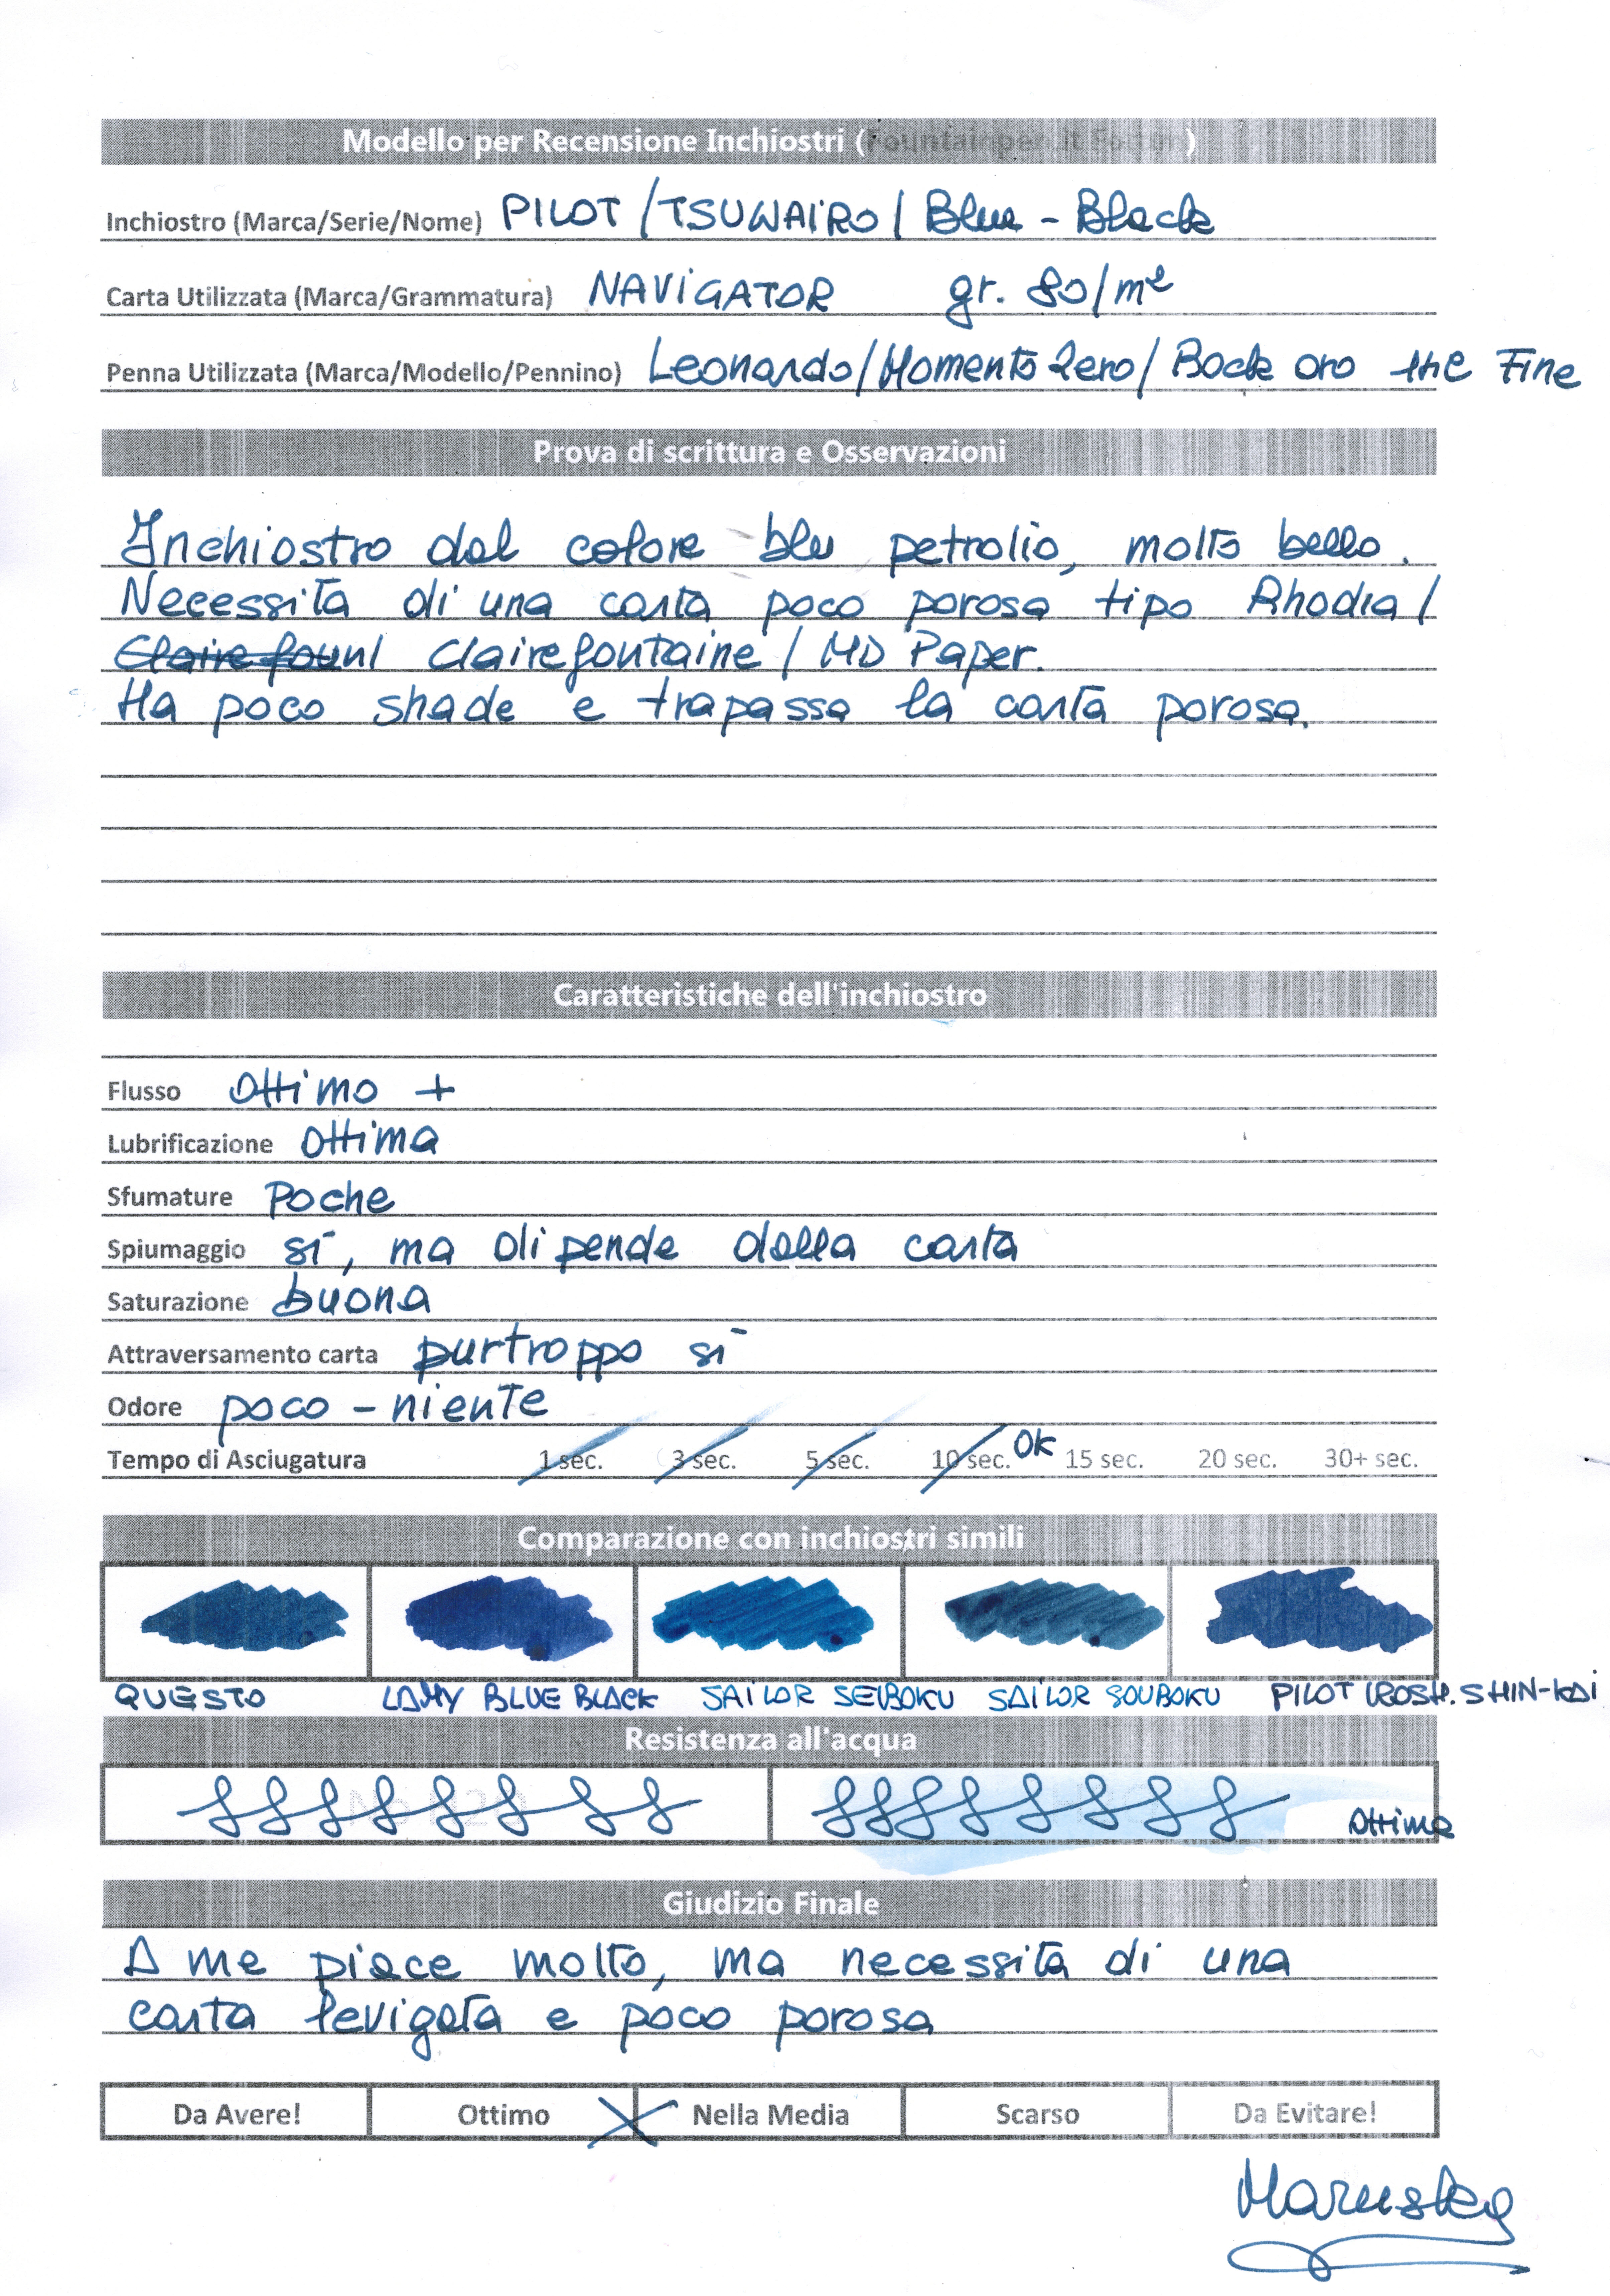 Modello per Recensione Inchiostri (Fountainpen.it Forum)
Inchiostro (Marca/Serie/Nome) PILOT / TSUWAIRO / Blue - Black
Carta Utilizzata (Marca/Grammatura) NAVIGATOR gr. 80/m²
Penna Utilizzata (Marca/Modello/Pennino) Leonardo/Momento Zero/ Bock oro Fine
Prova di scrittura e Osservazioni
Inchiostro dal colore blu petrolio, molto bello.
Necessita di una carta poco porosa tipo Rhodia/
Clairefontaine / MD Paper.
Ha poco shade e trapassa la carta porosa.
Caratteristiche dell'inchiostro
Flusso Ottimo +
Lubrificazione Ottima
Sfumature Poche
Spiumaggio sì, ma dipende dalla carta
Saturazione buona
Attraversamento carta purtroppo sì
Odore poco - niente
Tempo di Asciugatura 1 sec. 3 sec. 5 sec. 10 sec. OK 15 sec. 20 sec. 30+ sec.
Comparazione con inchiostri simili
QUESTO LAMY BLUE BLACK SAILOR SEIBOKU SAILOR SOUBOKU PILOT IROSH. SHIN-KAI
Resistenza all'acqua
Ottima
Giudizio Finale
A me piace molto, ma necessita di una
carta levigata e poco porosa
Da Avere! Ottimo Nella Media Scarso Da Evitare!
Marusky